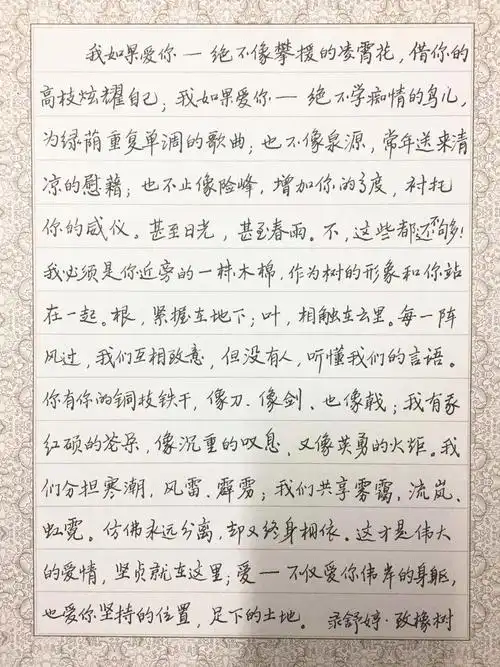 我如果爱你一绝不像攀援的凌霄花，借你的
高枝炫耀自己；我如果爱你一绝不学痴情的鸟儿，
为绿荫重复单调的歌曲；也不像泉源，常年送来清
凉的慰藉；也不止像险峰，增加你的高度，衬托
你的威仪。甚至日光，甚至春雨。不，这些都还不够！
我必须是你近旁的一株木棉，作为树的形象和你站
在一起。根，紧握在地下；叶，相触在云里。每一阵
风过，我们互相致意，但没有人，听懂我们的言语。
你有你的铜枝铁干，像刀、像剑、也像戟；我有我
红硕的花朵，像沉重的叹息，又像英勇的火炬。我
们分担寒潮，风雷、霹雳；我们共享雾霭，流岚、
虹霓。仿佛永远分离，却又终身相依。这才是伟大
的爱情，坚贞就在这里；爱一不仅爱你伟岸的身躯，
也爱你坚持的位置，足下的土地。 录舒婷·致橡树